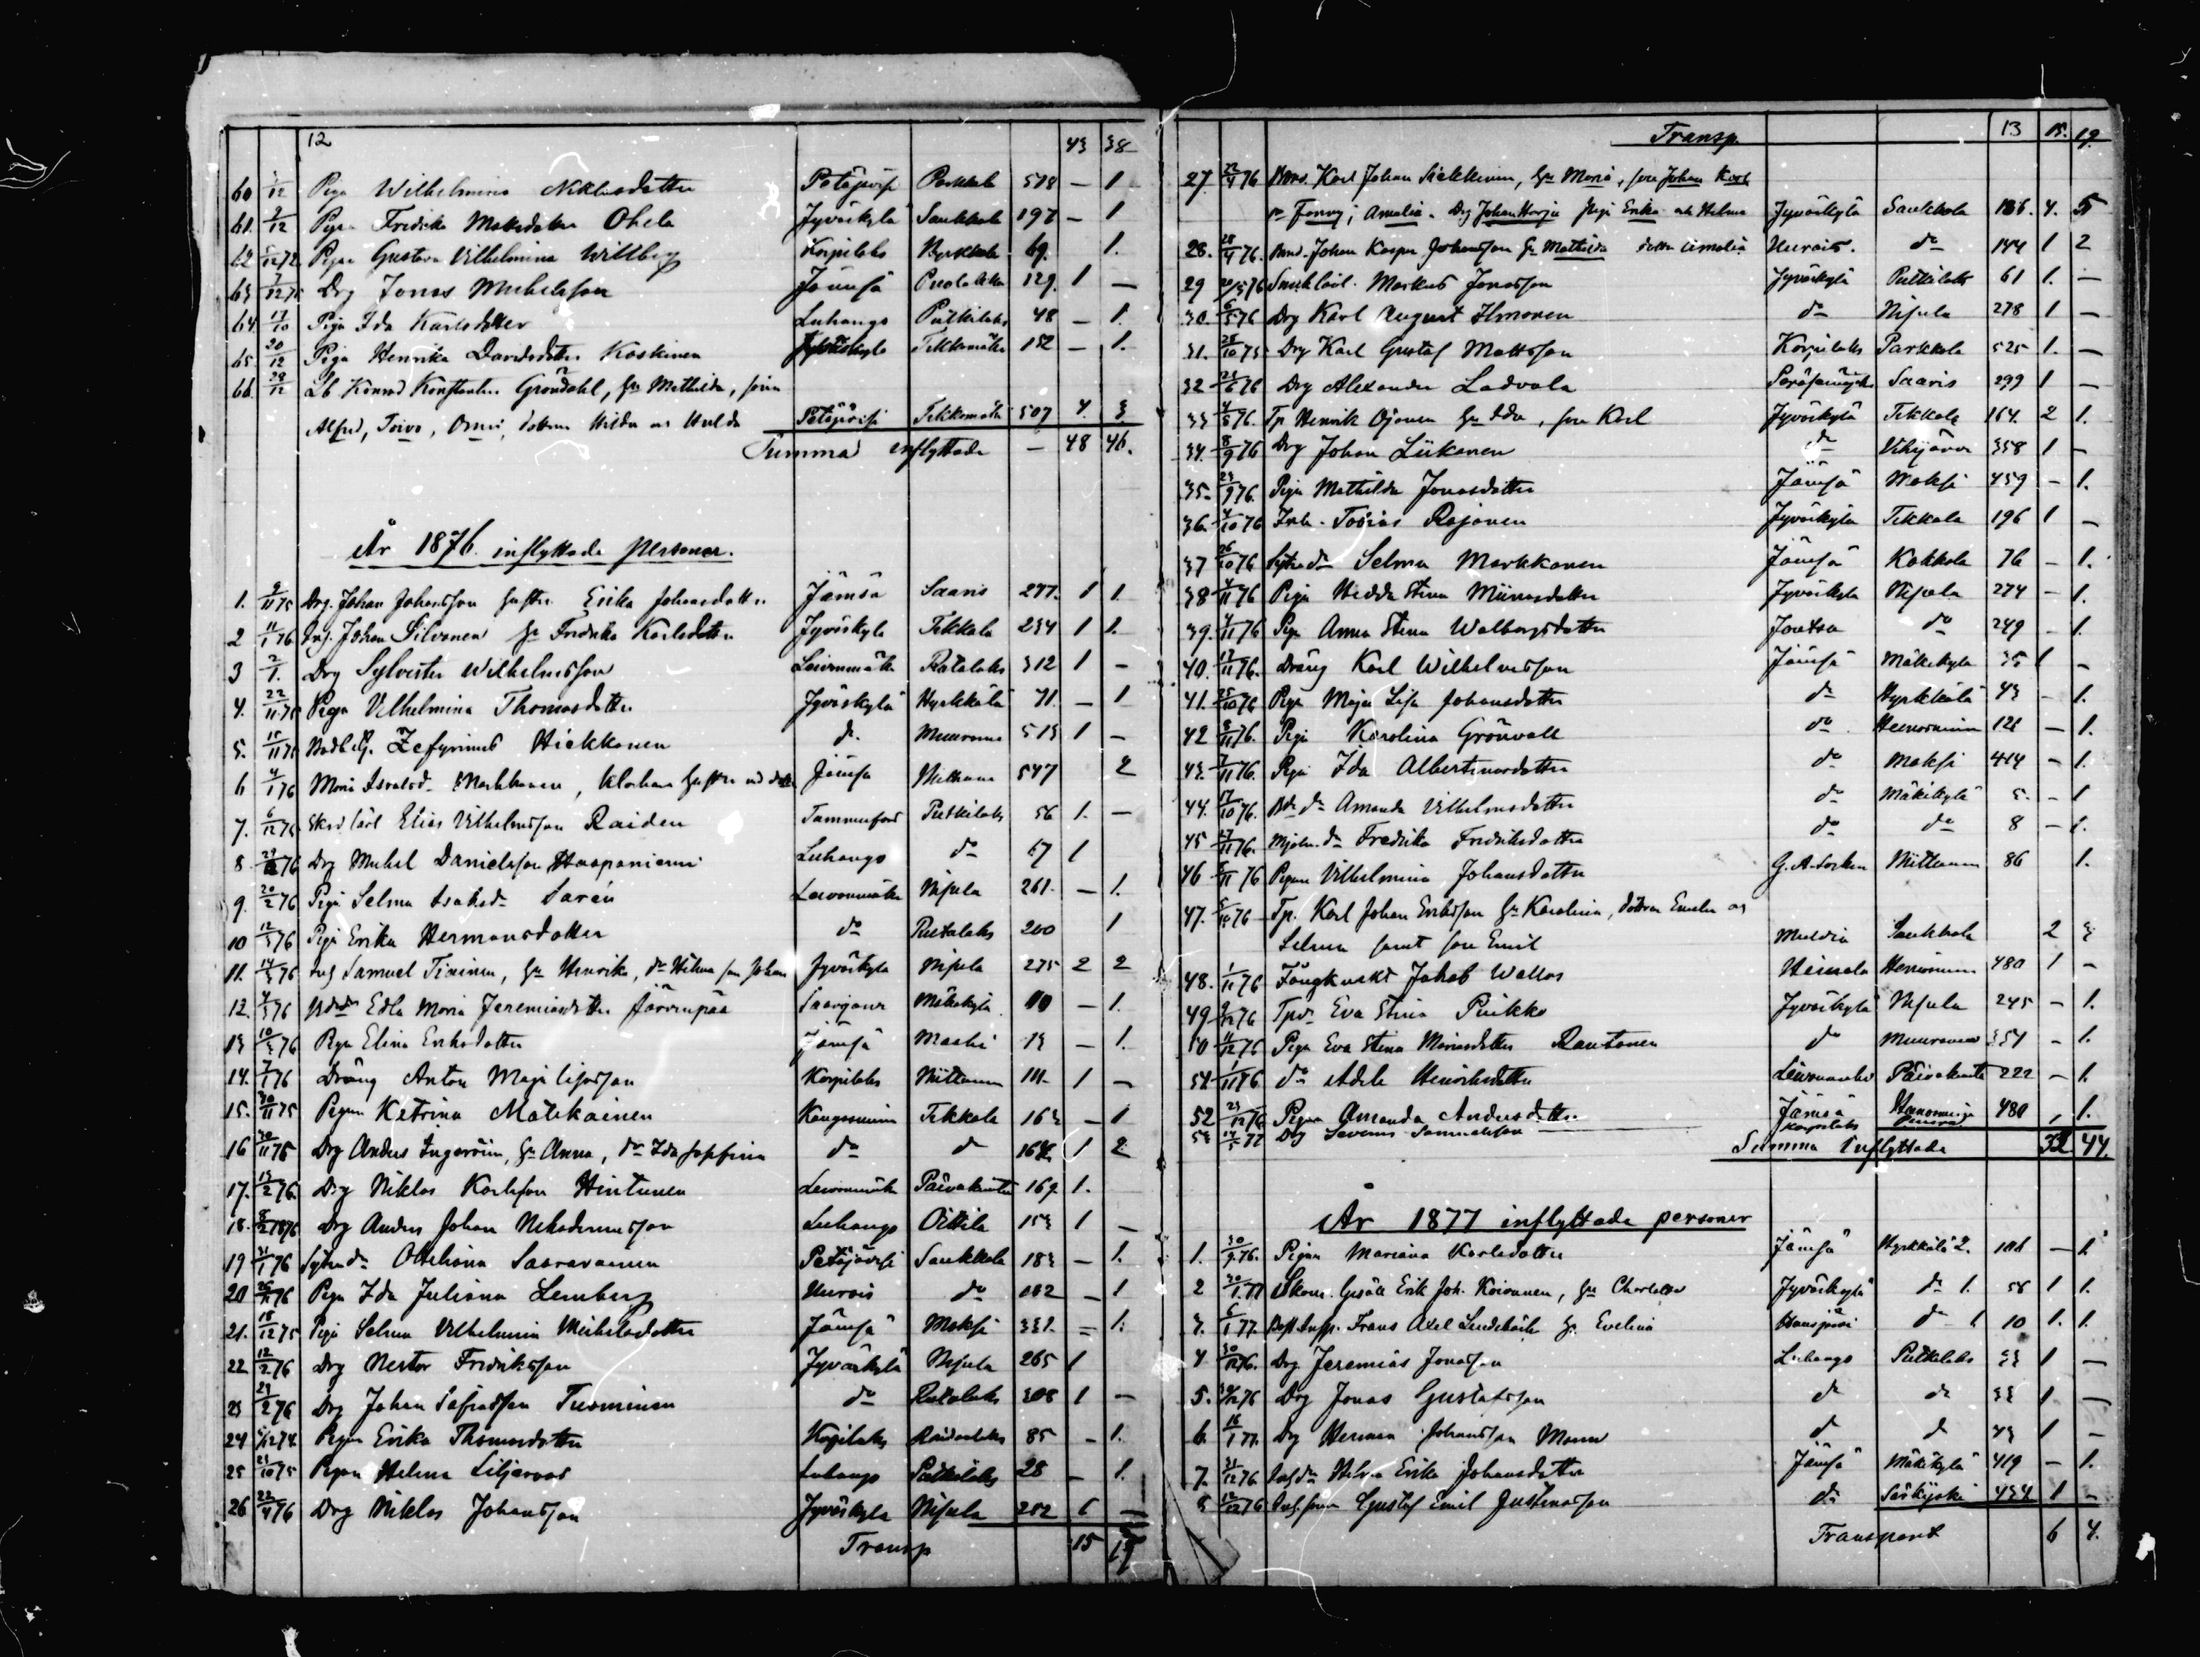 12 43 38
60 /12 Piga Wilhelmina Niklasdotter Petäjävesi Parkkola 578 — 1
61. 9/12 Pigan Fredrika Matsdotter Ohela Jyväskylä Saukkola 197 — 1
62 /12 72. Pigan Gustava Vilhelmina Willberg Korpilaks Hyrkkälä 69. 1.
63 7/12 75 Drg Jonas Michelsson Jämsä 129. 1 —
64. 17/10 Piga Ida Karlsdotter Luhango Putkilaks 48 — 1.
65 20/12 Piga Henrika Davidsdotter Koskinen Jyväskylä Tikkomäki 152 — 1.
66. 28/12 Lb Konrad Konstantin Gröndahl, Hu Mathilda, söner
Alfred, Toivo, Onni, döttrar Hilda och Hulda Petäjävesi Tikkomäki 507 4. 3.
Summa inflyttade — 48 46.
År 1876. inflyttade personer.
1. 9/11 75 Drg. Johan Johansson hustru Erika Johansdotter Jämsä Saaris 277. 1 1.
2 11/1 76 Inh. Johan Silvonen Hu Fredrika Karlsdotter Jyväskylä Tikkala 234 1 1.
3 2/1. Drg Sylvester Wilhelmsson Leivonmäki Rutalaks 312 1 —
4. 22/11 75 Pigan Vilhelmina Thomasdotter Jyväskylä Hyrkkälä 71. — 1
5. 15/11 75 Zefyrinus Hiekkanen do. Muurame 513 1 —
6 4/1 76 Maria Israelsd. Markkanen, hustru med dotter Jämsä Niittam 547 2
7. 6/12 75 Elias Vilhelmsson Raiden Tammerfors Putkilaks 56 1. —
8. 29/ 76 Drg Mickel Danielsson Haapaniemi Luhango do 67 1
9. 20/2 76 Piga Selma Isaksdr Sarén Leivonmäki Nisula 261. — 1.
10 12/3 76 Piga Erika Hermansdotter do Rutalaks 200 1
11. 14/3 76 Inh Samuel Tiainen, Hu Henrika, dr Hilma son Johan Jyväskylä Nisula 275 2 2
12. 4/3 76 Edla Maria Jeremiasdotter Järvenpää Saarijärvi Mäkikylä 110 — 1.
13 10/3 76 Pigan Elina Eriksdotter Jämsä 13 — 1.
14. 7/1 76 Dräng Anton Majalisasson Korpilaks Niittam 111. 1 —
15. 30/11 75 Pigan Katrina Matikainen Kangasniemi Tikkala 163 — 1
16 30/11 75 Drg Anders Ingeroinen, Hu Anna, dr Ida Josefina do do 164. 1 2.
17. 13/2 76. Drg Niklas Karlsson Hintunen Leivonmäki Päivakunta 169. 1.
18. 8/2 1876 Drg Anders Johan Nikodemusson Luhango Oittila 153 1 —
19 31/1 76 Sytn.dr Ottiliana Saaravainen Petäjävesi Saukkola 183 — 1.
20 76 Piga Ida Juliana Lemberg Keuru do 182 — 1
21. 18/12 75 Piga Selma Vilhelmina Michelsdotter Jämsä Moksi 331. = 1.
22 12/2 76 Drg Nestor Fredriksson Jyväskylä Nisula 265 1
23 29/2 76 Drg Johan Tuominen do Rutalaks 308 1 —
24 12 74. Pigan Erika Thomasdotter Korpilaks 85 — 1.
25 23/10 75 Pigan Helena Liljeroos Luhango Putkilaks 28 — 1.
26 22/4 76 Drg Niklas Johansson Jyväskylä Nisula 252 —
Transp 15 19
Transp. 13 15. 19
27. 22/4 76 Karl Johan Hiekkanen, Hu Maria, son Johan Karl
dr Fanny, Amalia. Drg Johan Piga Erika och Helena Jyväskylä Saukkola 186. 4. 5
28. 28/4 76. Johan Kasper Johansson Hu Mathilda dotter Amalia do 144 1 2
29 20/5 76 Markus Jonasson Jyväskylä Putkilaks 61 1. —
30. 6/5 76 Drg Karl August Ilmonen do Nisula 278 1 —
31. 28/10 75 Drg Karl Gustaf Mattsson Korpilaks Parkkola 525 1. —
32 23/6 76 Drg Alexander Ladvala Saaris 299 1 —
33 4/8 76. Tp Henrik Ojanen Hu Ida, son Karl Jyväskylä Tikkala 164. 2 1.
34. 8/9 76 Drg Johan Liikanen do Vihijärvi 358 1 —
35. 23/9 76. Piga Mathilda Jonasdotter Jämsä Moksi 459 — 1.
36. 4/10 76 Inh. Tobias Rajanen Jyväskylä Tikkala 196 1 —
37 26/10 76 Sytn.dr Selma Markkanen Jämsä Kakkola 76 — 1.
38 4/11 76 Piga Hedda Stina Miinasdotter Jyväskylä Nisula 274 — 1.
39. 4/11 76 Piga Anna Stina Walborgsdotter Joutsa do 249 — 1.
40. 13/11 76. Dräng Karl Wilhelmsson Jämsä Mäkikylä 35 1 —
41. 25/10 76 Piga Maja Lisa Johansdotter do Hyrkkälä 43 — 1.
42 8/11 76. Piga Karolina Grönvall do 121 — 1.
43. 7/11 76. Piga Ida Albertinasdotter do Moksi 414 — 1.
44. 17/10 76. Bd.dr Amanda Vilhelmsdotter do Mäkikylä 5. — 1
45 17/11 76. Mjöln.dr Fredrika Fredriksdotter do do 8 — 1.
46 5/11 76 Pigan Vilhelmina Johansdotter G. A. Socken Niittam 86 1.
47. 5/ 76 Tp. Karl Johan Eriksson Hu Karolina, döttrar och
Selma samt son Emil Multia Saukkola 2 3
48. 1/11 76 Jakob Wallas Heinola 480 1 —
49 9/12 76 Tpdr Eva Stina Piikko Jyväskylä Nisula 245 — 1.
50 11/12 76 Piga Eva Stina Rautanen do Muurame 354 — 1.
51. 1/11 76 do Adele Henriksdotter Leivonmäki Päivakunta 222 — 1.
52 23/12 76 Pigan Amanda Andersdotter Jämsä 480 , 1.
53 14/5 77 Drg Severus Samuelsson Korpilaks
Summa Inflyttade 32 44.
År 1877 inflyttade personer
1. 30/9 76. Pigan Mariana Karlsdotter Jämsä Hyrkkälä 2. 106 — 1.
2 30/1 77 Skom. Gesäll Erik Joh. Koivunen, Hu Charlotta Jyväskylä do 1. 58 1 1.
3. 6/1 77. Frans Axel Hu Evelina do 1 10 1. 1.
4 30/12 76. Drg. Jeremias Jonasson Luhango Putkilaks 33 1 —
5. 12 76 Drg Jonas Gustafsson do do 33 1. —
6. 16/1 77. Drg Herman Johansson Manner do do 43 1 —
7. 31/12 76 Inh.dr Helena Erika Johansdotter Jämsä Mäkikylä 419 — 1.
8 12/12 76 Inh.son Gustaf Emil Justinasson do Särkijoki 434 1 —
Transport 6 4.